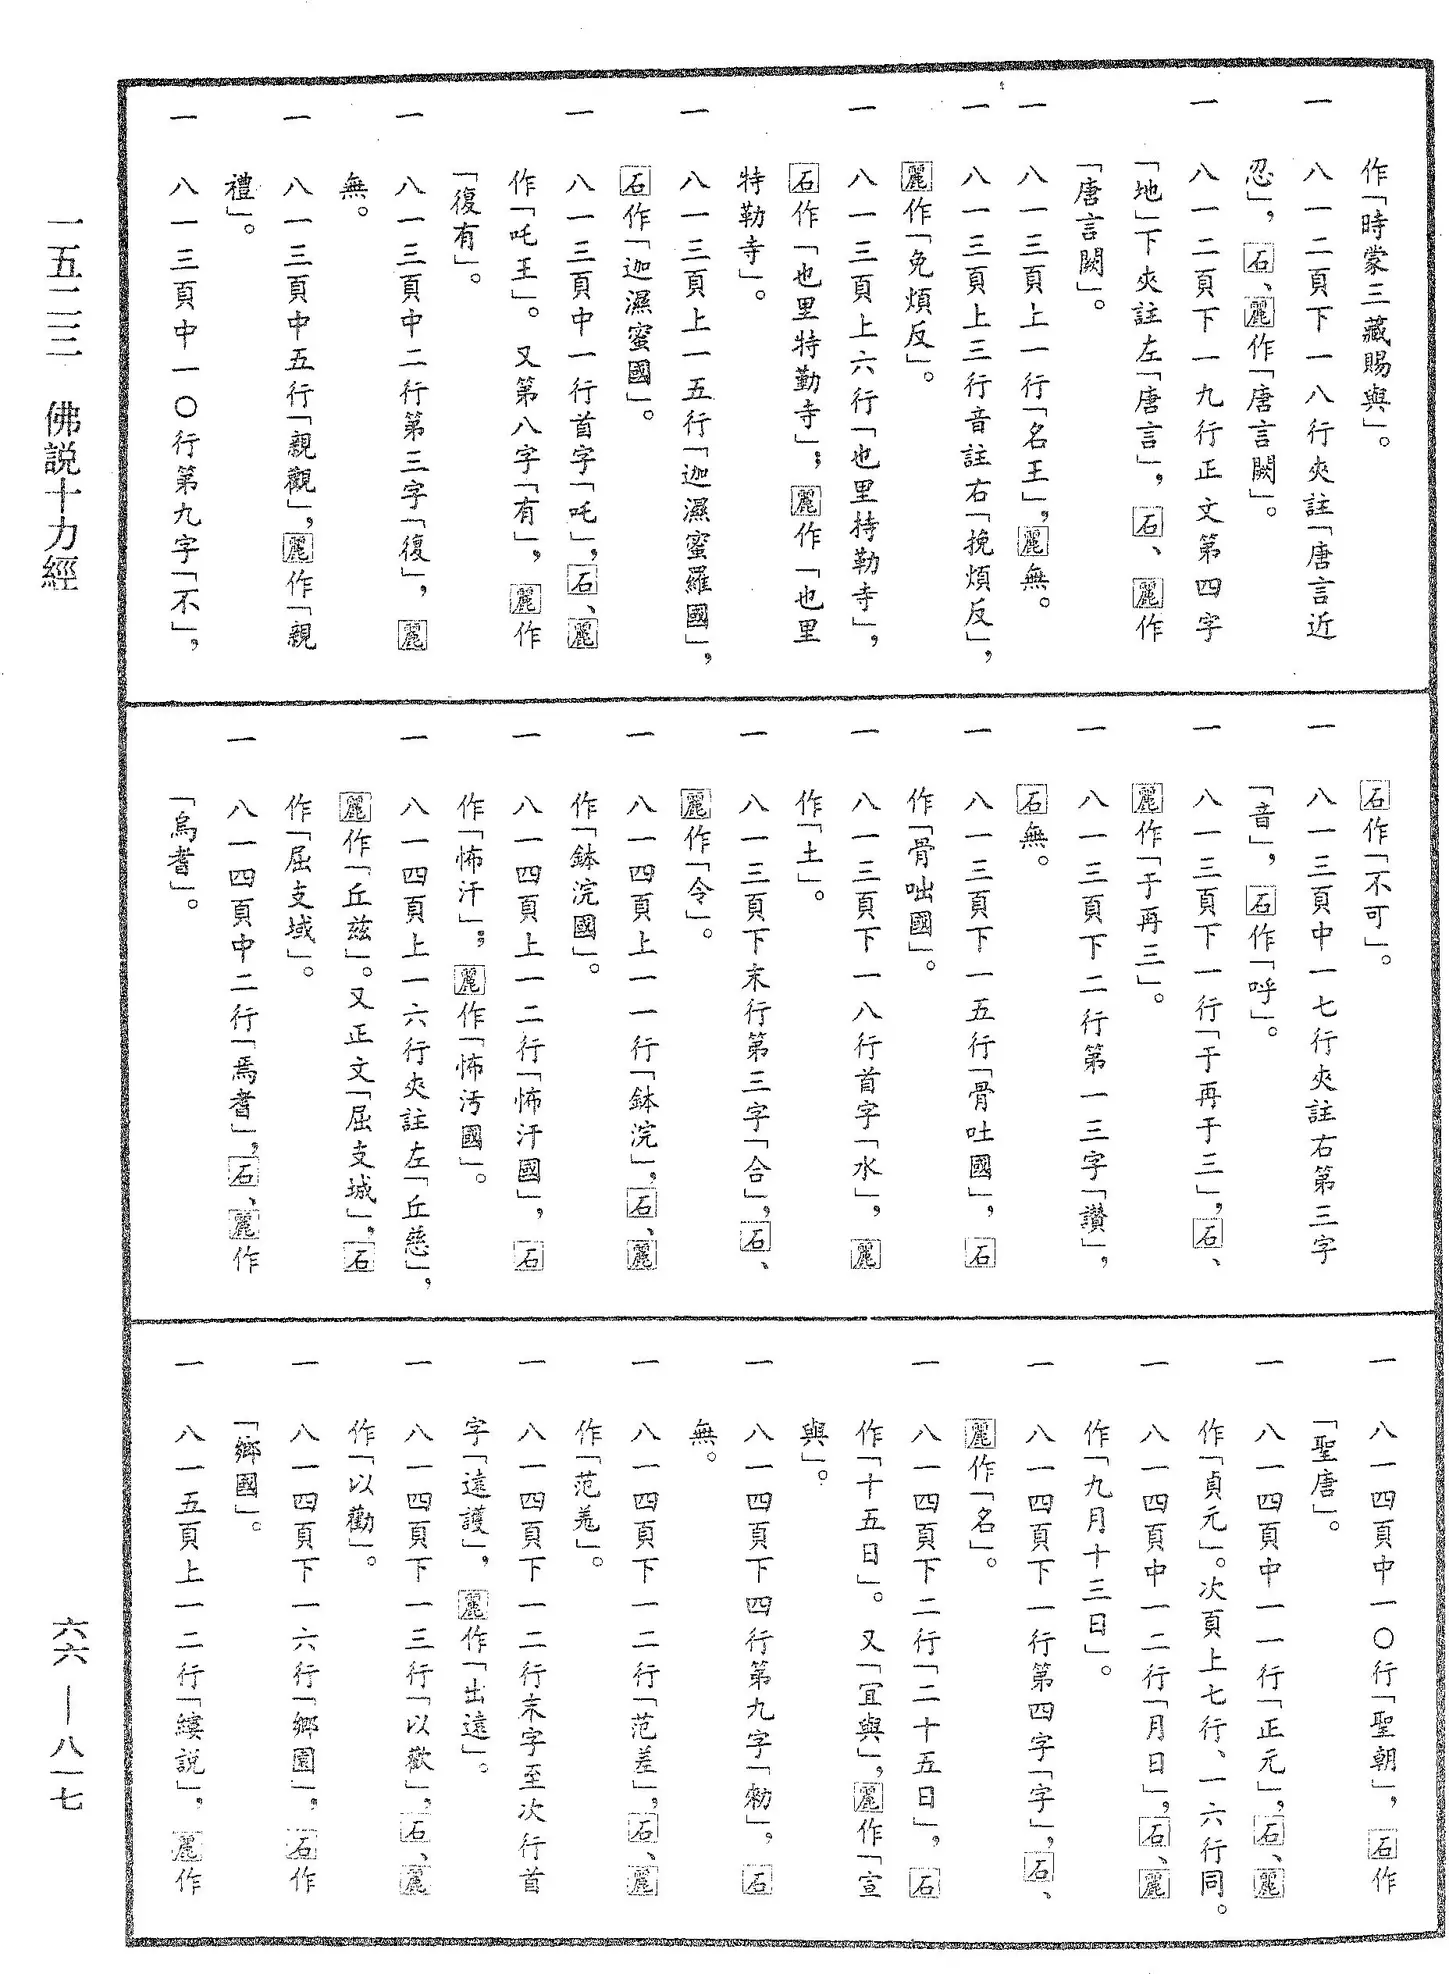 作「時蒙三藏賜與」。
一 八一二頁下一八行夾註「唐言近
忍」，石、麗作「唐言闕」。
一 八一二頁下一九行正文第四字
「地」下夾註左「唐言」，石、麗作
「唐言闕」。
一 八一三頁上一行「名王」，麗無。
一 八一三頁上三行音註右「挽煩反」，
麗作「免煩反」。
一 八一三頁上六行「也里持勒寺」，
石作「也里特勤寺」；麗作「也里
特勒寺」。
一 八一三頁上一五行「迦濕蜜羅國」，
石作「迦濕蜜國」。
一 八一三頁中一行首字「吒」，石、麗
作「吒王」。又第八字「有」，麗作
「復有」。
一 八一三頁中二行第三字「復」，麗
無。
一 八一三頁中五行「親觀」，麗作「親
禮」。
一 八一三頁中一〇行第九字「不」，
石作「不可」。
一 八一三頁中一七行夾註右第三字
「音」，石作「呼」。
一 八一三頁下一行「于再于三」，石、
麗作「于再三」。
一 八一三頁下二行第一三字「讚」，
石無。
一 八一三頁下一五行「骨吐國」，石
作「骨咄國」。
一 八一三頁下一八行首字「水」，麗
作「土」。
一 八一三頁下末行第三字「合」，石、
麗作「令」。
一 八一四頁上一一行「鉢浣」，石、麗
作「鉢浣國」。
一 八一四頁上一二行「怖汗國」，石
作「怖汗」；麗作「怖汚國」。
一 八一四頁上一六行夾註左「丘慈」，
麗作「丘茲」。又正文「屈支城」，石
作「屈支域」。
一 八一四頁中二行「焉耆」，石、麗作
「烏耆」。
一 八一四頁中一〇行「聖朝」，石作
「聖唐」。
一 八一四頁中一一行「正元」，石、麗
作「貞元」。次頁上七行、一六行同。
一 八一四頁中一二行「月日」，石、麗
作「九月十三日」。
一 八一四頁下一行第四字「字」，石、
麗作「名」。
一 八一四頁下二行「二十五日」，石
作「十五日」。又「宜與」，麗作「宣
與」。
一 八一四頁下四行第九字「勑」，石
無。
一 八一四頁下一二行「范差」，石、麗
作「范羗」。
一 八一四頁下一二行末字至次行首
字「遠護」，麗作「出遠」。
一 八一四頁下一三行「以歡」，石、麗
作「以勸」。
一 八一四頁下一六行「鄉園」，石作
「鄉國」。
一 八一五頁上一二行「縷説」，麗作
一五二三 佛説十力經
六六—八一七